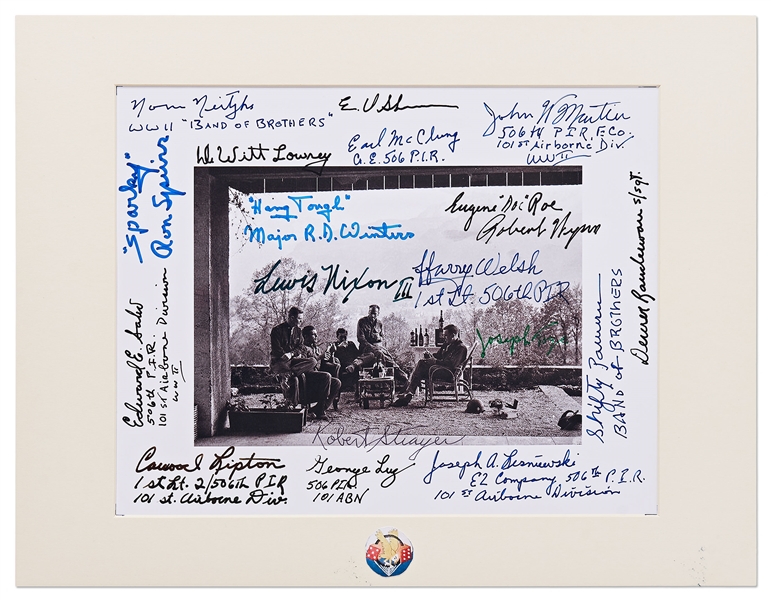 Norm Neitzke
WWII "BAND OF BROTHERS"
E. V. Shames
John W Martin
506th P.I.R. F. Co.
101st Airborne Div.
WW II
Earl McClung
Co. E. 506 P.I.R.
DeWitt Lowrey
"Sparky"
Ron Speirs
"Hang Tough"
Major R.D. Winters
Eugene "Doc" Roe
Robert
Lewis Nixon III
Harry Welsh
1st Lt. 506th PIR
Joseph
S/Sgt.
Shifty Powers
BAND of BROTHERS
Edward E.
506th P.I.R.
101st Airborne Division
WW II
Robert Strayer
Carwood Lipton
1st Lt. 2/506th PIR
101 st. Airborne Div.
George Luz
506 PIR
101 ABN
Joseph A. Lesniewski
E2 Company 506th P.I.R.
101st Airborne Division